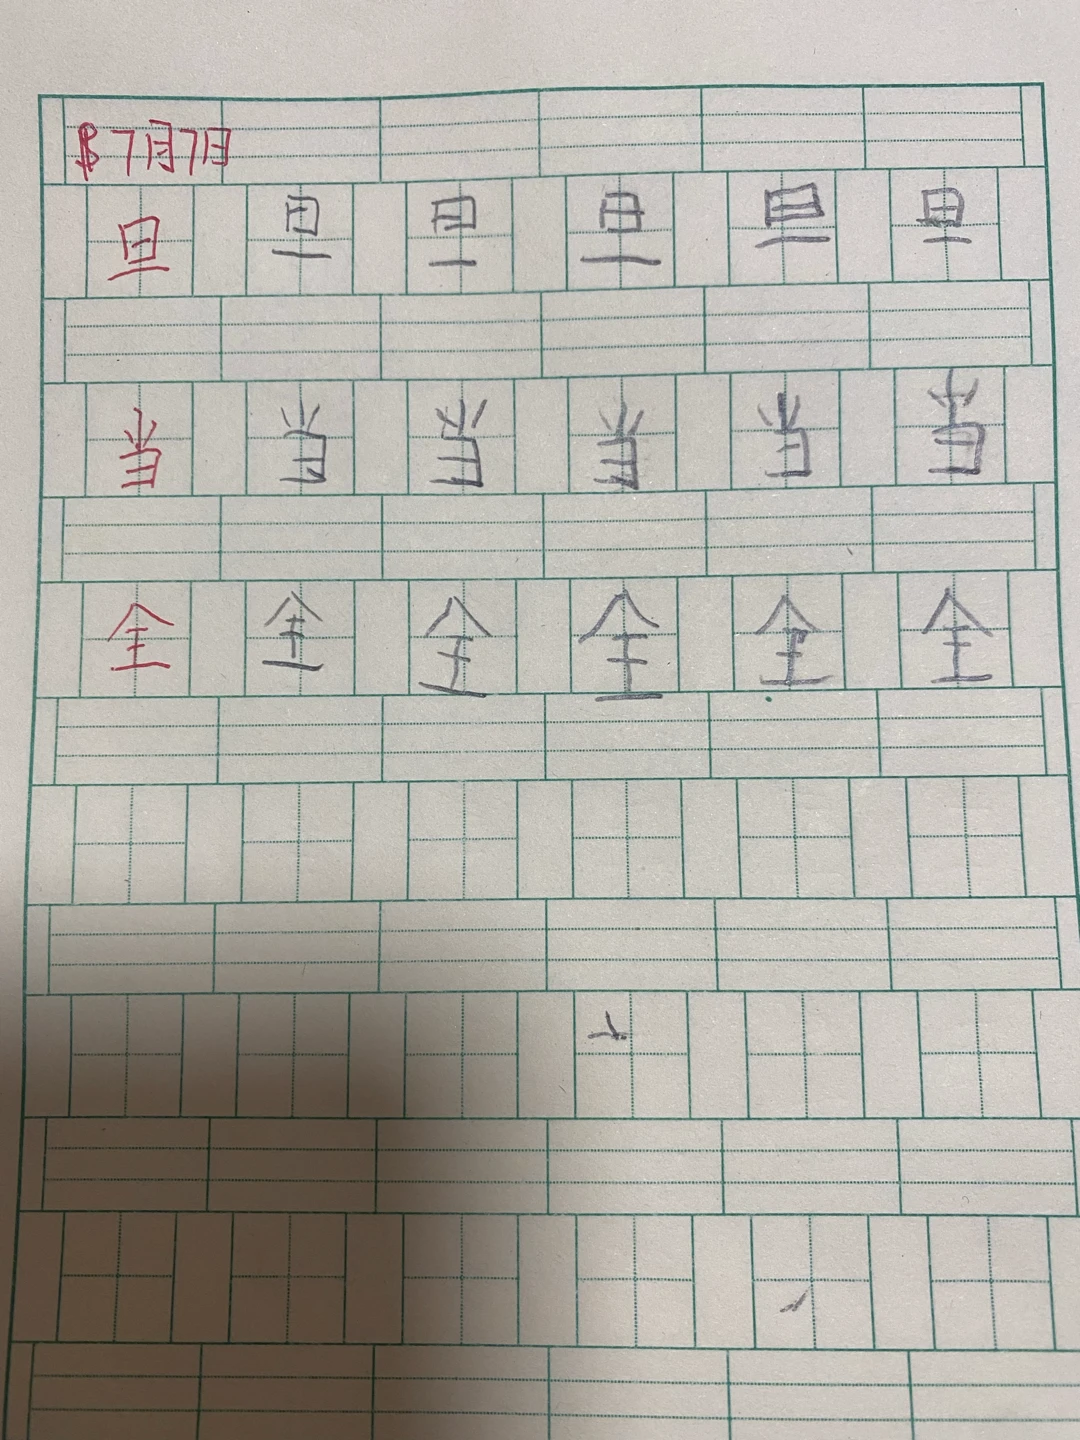 7月7日
旦 旦 旦 旦 旦 旦
当 当 当 当 当 当
全 全 全 全 全 全